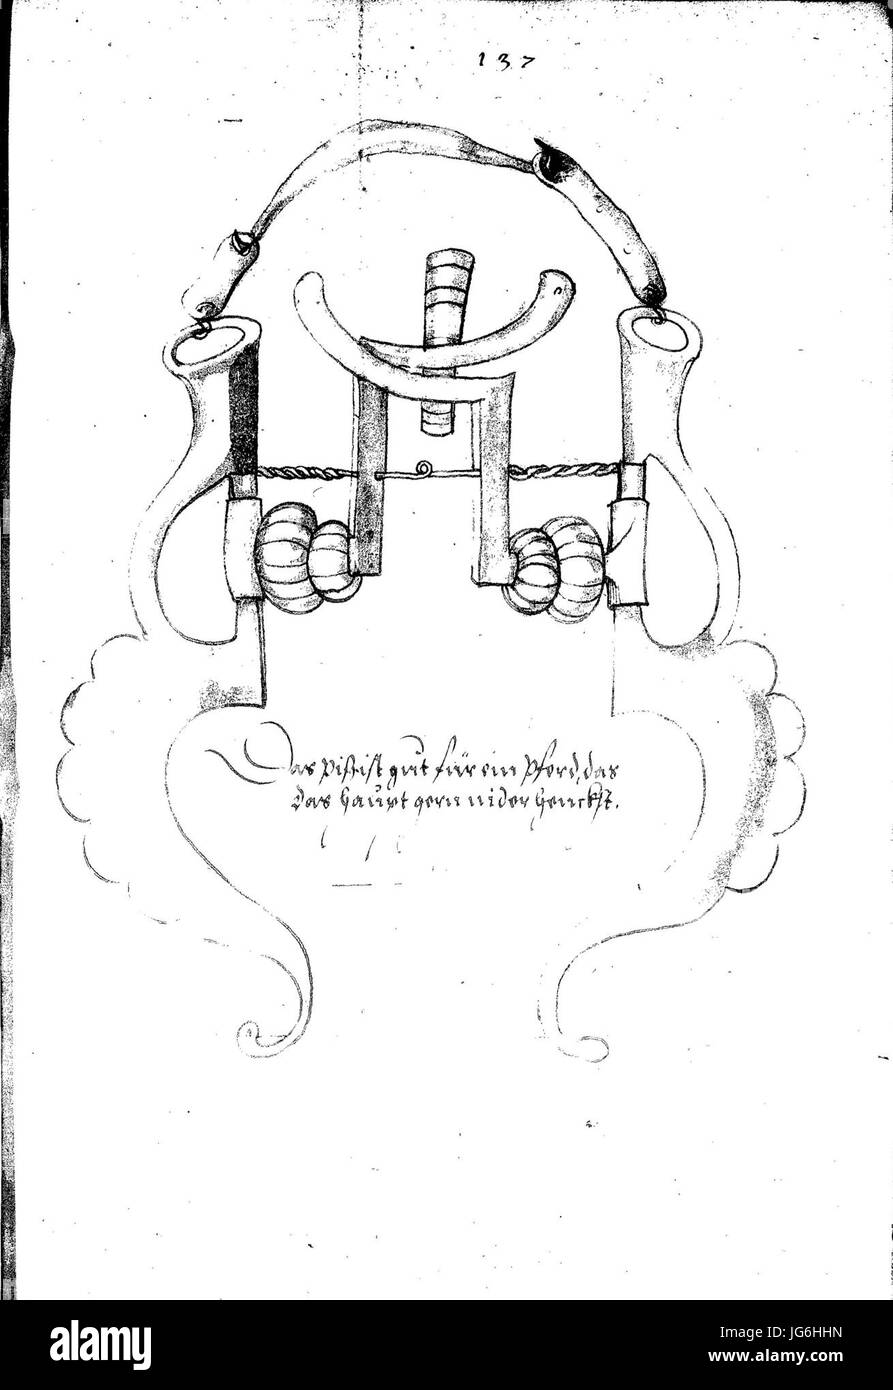 137
Das Piß ist gut für ein Pferd, das
das haupt gern nider henckst.
alamy
a
a
alamy
Image ID: JG6HHN
www.alamy.com